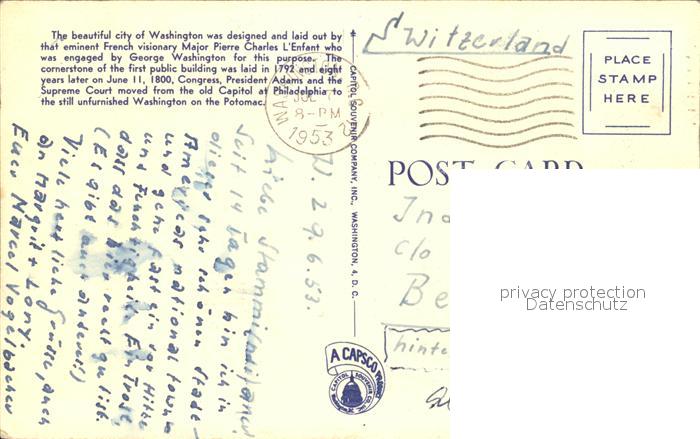 The beautiful city of Washington was designed and laid out by
that eminent French visionary Major Pierre Charles L'Enfant who
was engaged by George Washington for this purpose. The
cornerstone of the first public building was laid in 1792 and eight
years later on June 11, 1800, Congress, President Adams and the
Supreme Court moved from the old Capitol at Philadelphia to
the still unfurnished Washington on the Potomac.
8-PM
1953
CAPITOL SOUVENIR COMPANY, INC., WASHINGTON, 4, D. C.
Switzerland
PLACE
STAMP
HERE
POST CARD
c/o
Be
hinte
privacy protection
Datenschutz
A CAPSCO PRODUCT
CAPITOL SOUVENIR CO., INC.
W. 29.6.53.
Liebe
Seit 14 Tagen bin ich in
dieser sehr schönen Stadt
Americas national town
und gehe fast ein vor Hitze
und Feuchtigkeit. Ein Trost,
dass das Bier recht gut ist.
(Es gibt auch anderes!)
Viele herzliche Grüsse, auch
an Margrit + Lony.
Euer Marcel Vogelbacher